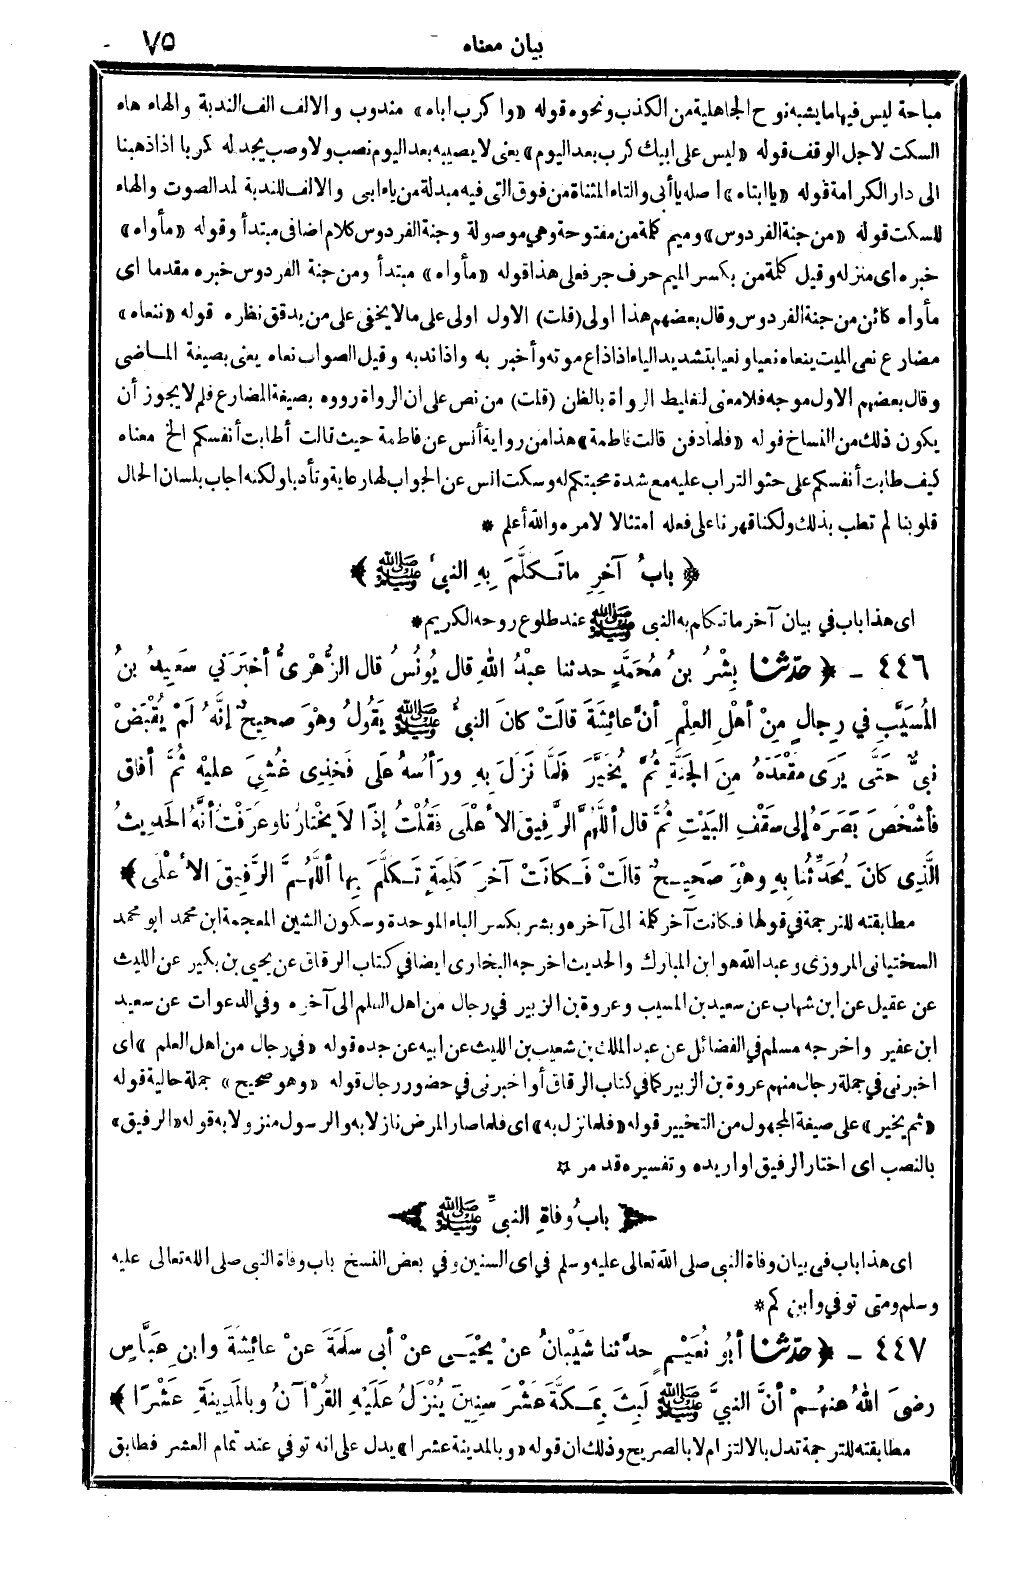 بيان معناه ٧٥
مباحة ليس فيها ما يشبه نوح الجاهلية من الكذب ونحوه قوله «وا كرب اباه» مندوب والالف الف الندبة والهاء هاء
السكت لاجل الوقف قوله «ليس على ابيك كرب بعد اليوم» يعنى لا يصيبه بعد اليوم نصب ولا وصب يجد له كربا اذا ذهبنا
الى دار الكرامة قوله «يا ابتاه» اصله يا أبى والتاء المثناة من فوق التى فيه مبدلة من ياء ابى والالف للندبة لمد الصوت والهاء
للسكت قوله «من جنة الفردوس» وميم كلمة من مفتوحة وهى موصولة وجنة الفردوس كلام اضافى مبتدأ وقوله «مأواه»
خبره اى منزله وقيل كلمة من بكسر الميم حرف جر فعلى هذا قوله «مأواه» مبتدأ ومن جنة الفردوس خبره مقدما اى
مأواه كائن من جنة الفردوس وقال بعضهم هذا اولى (قلت) الاول اولى على ما لا يخفى على من يدقق نظره قوله «ننعاه»
مضارع نعى الميت ينعاه نعيا ونعيا بتشديد الياء اذا ذاع موته وأخبر به واذا ندبه وقيل الصواب نعاه يعنى بصيغة الماضى
وقال بعضهم الاول موجه فلا معنى لتغليط الرواة بالظن (قلت) من نص على ان الرواة رووه بصيغة المضارع فلم لا يجوز أن
يكون ذلك من النساخ قوله «فلما دفن قالت فاطمة» هذا من رواية أنس عن فاطمة حيث قالت أطابت أنفسكم الخ معناه
كيف طابت أنفسكم على حثو التراب عليه مع شدة محبتكم له وسكت انس عن الجواب لها رعاية وتأدبا ولكنه اجاب بلسان الحال
قلوبنا لم تطب بذلك ولكنا قهرنا على فعله امتثالا لامره والله أعلم *
﴿ بابُ آخِرِ ما تَكلَّمَ بِهِ النبىُّ ﷺ ﴾
اى هذا باب في بيان آخر ما تكلم به النبى ﷺ عند طلوع روحه الكريم *
٤٤٦ - ﴿ حدّثنا بِشْرُ بنُ مُحَمَّدٍ حدثنا عبْدُ اللهِ قال يُونُسُ قال الزُّهْرِىُّ أخبَرَني سَعِيدُ بنُ
المُسَيَّبِ في رِجالٍ مِنْ أهْلِ العِلْمِ أنَّ عائِشَةَ قالَتْ كانَ النبىُّ ﷺ يَقُولُ وهْوَ صحِيحٌ إنَّهُ لَمْ يُقْبَضْ
نبىٌّ حَتَّى يَرَى مَقْعَدَهُ مِنَ الجَنَّةِ ثُمَّ يُخيَّرَ فَلَمَّا نَزَلَ بِهِ ورَأْسُهُ على فَخِذِى غُشِىَ عليْهِ ثُمَّ أفاقَ
فأشْخَصَ بَصَرَهُ إلى سَقْفِ البَيْتِ ثُمَّ قال أللَّهُمَّ الرَّفِيقَ الأعْلَى فَقُلْتُ إذًا لاَ يخْتارُنا وعرَفْتُ أنَّهُ الحَدِيثُ
الَّذِى كانَ يُحَدِّثُنا بهِ وهْوَ صَحِيحٌ قالَتْ فَكانَتْ آخرَ كَلِمَةٍ تَكلَّمَ بِها أللَّهُمَّ الرَّفِيقَ الأعْلَى ﴾
مطابقته للترجمة في قولها فكانت آخر كلمة الى آخره وبشر بكسر الباء الموحدة وسكون الشين المعجمة ابن محمد ابو محمد
السختيانى المروزى وعبد الله هو ابن المبارك والحديث اخرجه البخارى ايضا في كتاب الرقاق عن يحيى بن بكير عن الليث
عن عقيل عن ابن شهاب عن سعيد بن المسيب وعروة بن الزبير في رجال من اهل العلم الى آخره وفي الدعوات عن سعيد
ابن عفير واخرجه مسلم في الفضائل عن عبد الملك بن شعيب بن الليث عن ابيه عن جده قوله «في رجال من اهل العلم» اى
اخبرنى في جملة رجال منهم عروة بن الزبير كما في كتاب الرقاق أو اخبرنى في حضور رجال قوله «وهو صحيح» جملة حالية قوله
«ثم يخير» على صيغة المجهول من التخيير قوله «فلما نزل به» اى فلما صار المرض نازلا به والرسول منزولا به قوله «الرفيق»
بالنصب اى اختار الرفيق او اريده وتفسيره قد مر ☆
﴿ بابُ وفاةِ النبىِّ ﷺ ﴾
اى هذا باب فى بيان وفاة النبى صلى الله تعالى عليه وسلم في اى السنين وفي بعض النسخ باب وفاة النبى صلى الله تعالى عليه
وسلم ومتى توفي وابن كم *
٤٤٧ - ﴿ حدّثنا أبُو نُعَيْمٍ حدَّثنا شَيْبانُ عنْ يحْيَى عنْ أبى سلَمَةَ عنْ عائِشَةَ وابنِ عبَّاسٍ
رضىَ اللهُ عنهُمْ أنَّ النبىَّ ﷺ لَبِثَ بِمَكَّةَ عَشْرَ سِنِينَ يُنْزَلُ عَلَيْهِ القُرْآنُ وبالمَدِينَةِ عَشْرًا ﴾
مطابقته للترجمة تدل بالالتزام لا بالصريح وذلك ان قوله «وبالمدينة عشرا» يدل على انه توفي عند تمام العشر فطابق